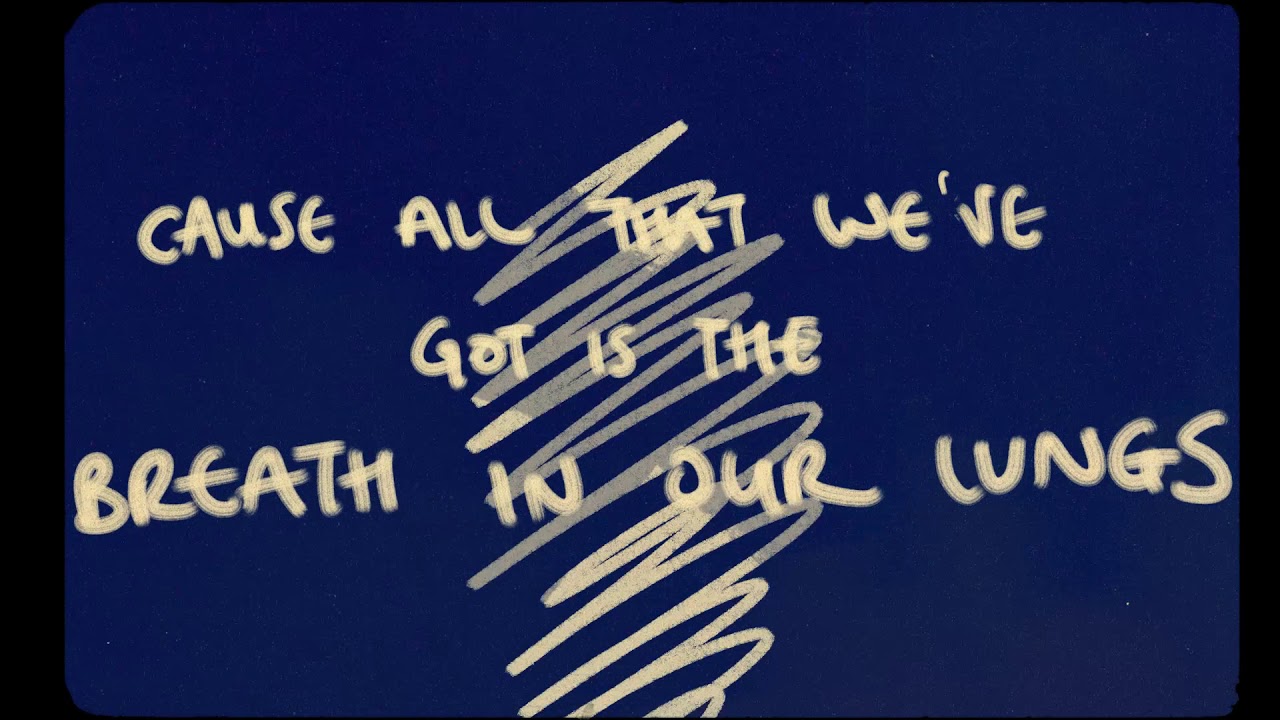 CAUSE ALL THAT WE'VE
GOT IS THE
BREATH IN OUR LUNGS